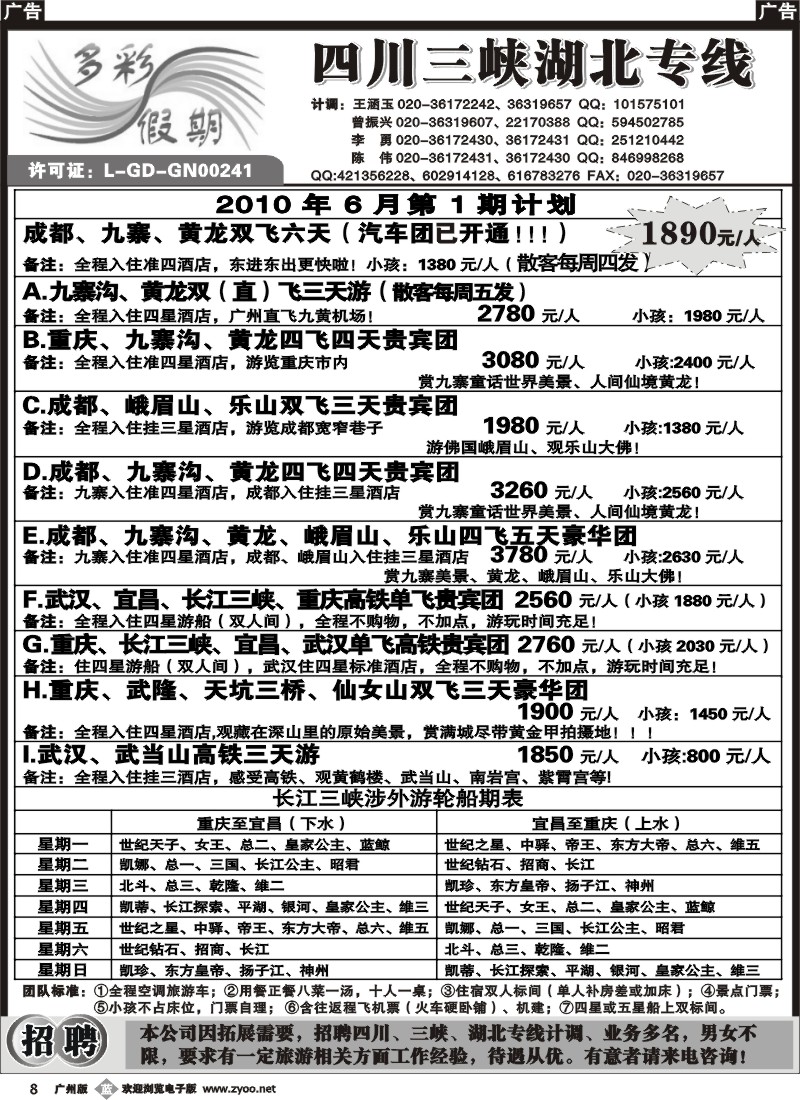 广告
广告
多彩
假期
许可证：L-GD-GN00241
四川三峡湖北专线
计调：王涵玉 020-36172242、36319657 QQ：101575101
曾振兴 020-36319607、22170388 QQ：594502785
李　勇 020-36172430、36172431 QQ：251210442
陈　伟 020-36172431、36172430 QQ：846998268
QQ:421356228、602914128、616783276 FAX：020-36319657
2010 年 6 月第 1 期计划
成都、九寨、黄龙双飞六天（汽车团已开通！！！）
1890元/人
备注：全程入住准四酒店，东进东出更快啦！小孩：1380 元/人（散客每周四发）
A.九寨沟、黄龙双（直）飞三天游（散客每周五发）
备注：全程入住四星酒店，广州直飞九黄机场！ 2780 元/人 小孩：1980 元/人
B.重庆、九寨沟、黄龙四飞四天贵宾团
备注：全程入住准四星酒店，游览重庆市内 3080 元/人 小孩:2400 元/人
赏九寨童话世界美景、人间仙境黄龙！
C.成都、峨眉山、乐山双飞三天贵宾团
备注：全程入住挂三星酒店，游览成都宽窄巷子 1980 元/人 小孩:1380 元/人
游佛国峨眉山、观乐山大佛！
D.成都、九寨沟、黄龙四飞四天贵宾团
备注：九寨入住准四星酒店，成都入住挂三星酒店 3260 元/人 小孩:2560 元/人
赏九寨童话世界美景、人间仙境黄龙！
E.成都、九寨沟、黄龙、峨眉山、乐山四飞五天豪华团
备注：九寨入住准四星酒店，成都、峨眉山入住挂三星酒店 3780 元/人 小孩:2630 元/人
赏九寨美景、黄龙、峨眉山、乐山大佛！
F.武汉、宜昌、长江三峡、重庆高铁单飞贵宾团 2560 元/人（小孩 1880 元/人）
备注：全程入住四星游船（双人间），全程不购物，不加点，游玩时间充足！
G.重庆、长江三峡、宜昌、武汉单飞高铁贵宾团 2760 元/人（小孩 2030 元/人）
备注：住四星游船（双人间），武汉住四星标准酒店，全程不购物，不加点，游玩时间充足！
H.重庆、武隆、天坑三桥、仙女山双飞三天豪华团
1900 元/人 小孩：1450 元/人
备注：全程入住四星酒店,观藏在深山里的原始美景，赏满城尽带黄金甲拍摄地！！！
I.武汉、武当山高铁三天游 1850 元/人 小孩:800 元/人
备注：全程入住挂三酒店，感受高铁、观黄鹤楼、武当山、南岩宫、紫霄宫等!
长江三峡涉外游轮船期表
重庆至宜昌（下水） 宜昌至重庆（上水）
星期一 世纪天子、女王、总二、皇家公主、蓝鲸 世纪之星、中驿、帝王、东方大帝、总六、维五
星期二 凯娜、总一、三国、长江公主、昭君 世纪钻石、招商、长江
星期三 北斗、总三、乾隆、维二 凯珍、东方皇帝、扬子江、神州
星期四 凯蒂、长江探索、平湖、银河、皇家公主、维三 世纪天子、女王、总二、皇家公主、蓝鲸
星期五 世纪之星、中驿、帝王、东方大帝、总六、维五 凯娜、总一、三国、长江公主、昭君
星期六 世纪钻石、招商、长江 北斗、总三、乾隆、维二
星期日 凯珍、东方皇帝、扬子江、神州 凯蒂、长江探索、平湖、银河、皇家公主、维三
团队标准：①全程空调旅游车；②用餐正餐八菜一汤，十人一桌；③住宿双人标间（单人补房差或加床）；④景点门票；
⑤小孩不占床位，门票自理；⑥含往返程飞机票（火车硬卧铺）、机建；⑦四星或五星船上双标间。
招聘
本公司因拓展需要，招聘四川、三峡、湖北专线计调、业务多名，男女不
限，要求有一定旅游相关方面工作经验，待遇从优。有意者请来电咨询！
8 广州版 蓝 欢迎浏览电子版 www.zyoo.net